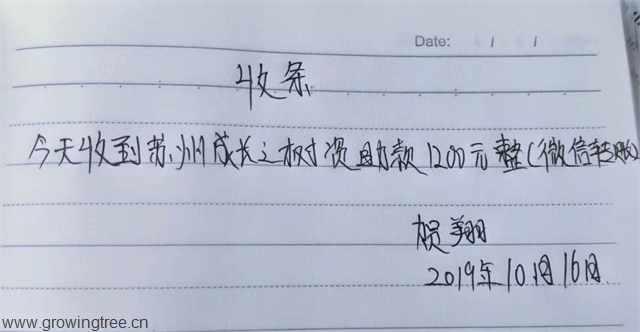 Date: / /
收条
今天收到苏州成长之树资助款1200元整(微信转账)
贺翔
2019年10月16日
www.growingtree.cn